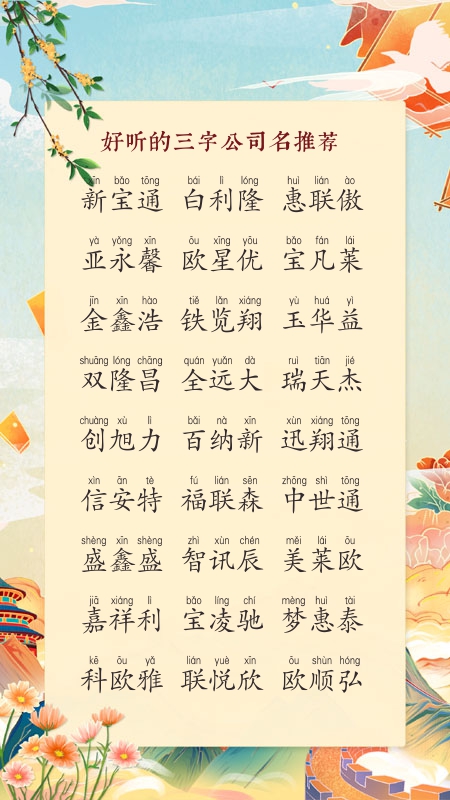 好听的三字公司名推荐
xīn bǎo tōng bái lì lóng huì lián ào
新宝通 白利隆 惠联傲
yà yǒng xīn ōu xīng yōu bǎo fán lái
亚永馨 欧星优 宝凡莱
jīn xīn hào tiě lǎn xiáng yù huá yì
金鑫浩 铁览翔 玉华益
shuāng lóng chāng quán yuǎn dà ruì tiān jié
双隆昌 全远大 瑞天杰
chuàng xù lì bǎi nà xīn xùn xiáng tōng
创旭力 百纳新 迅翔通
xìn ān tè fú lián sēn zhōng shì tōng
信安特 福联森 中世通
shèng xīn shèng zhì xùn chén měi lái ōu
盛鑫盛 智讯辰 美莱欧
jiā xiáng lì bǎo líng chí mèng huì tài
嘉祥利 宝凌驰 梦惠泰
kē ōu yǎ lián yuè xīn ōu shùn hóng
科欧雅 联悦欣 欧顺弘